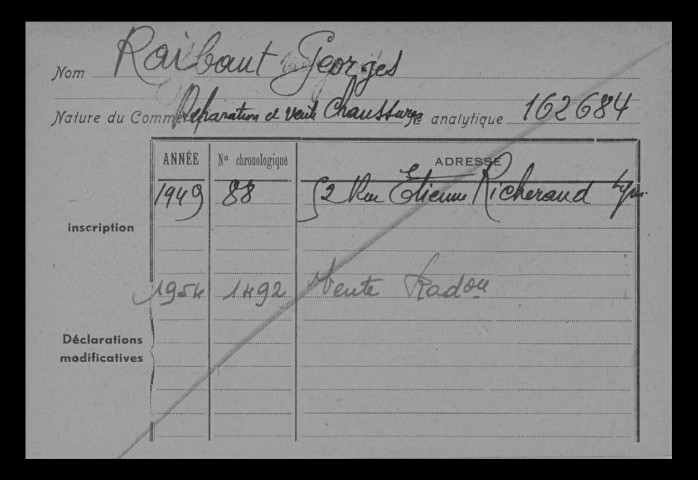 Nom Raibaut Georges
Nature du Comm Réparation et vente Chaussures N° analytique 162684
ANNÉE N° chronologique ADRESSE
1949 88 52 Rue Etienne Richerand Lyon
inscription
1954 1492 Vente Radou
Déclarations
modificatives